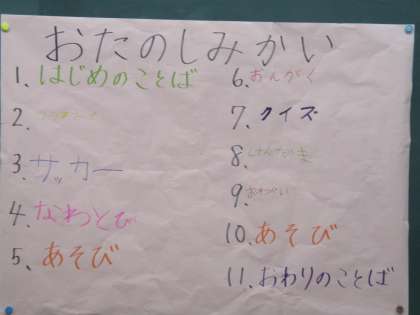 おたのしみかい
1、はじめのことば
2、
3、サッカー
4、なわとび
5、あそび
6、おんがく
7、クイズ
8、
9、
10、あそび
11、おわりのことば